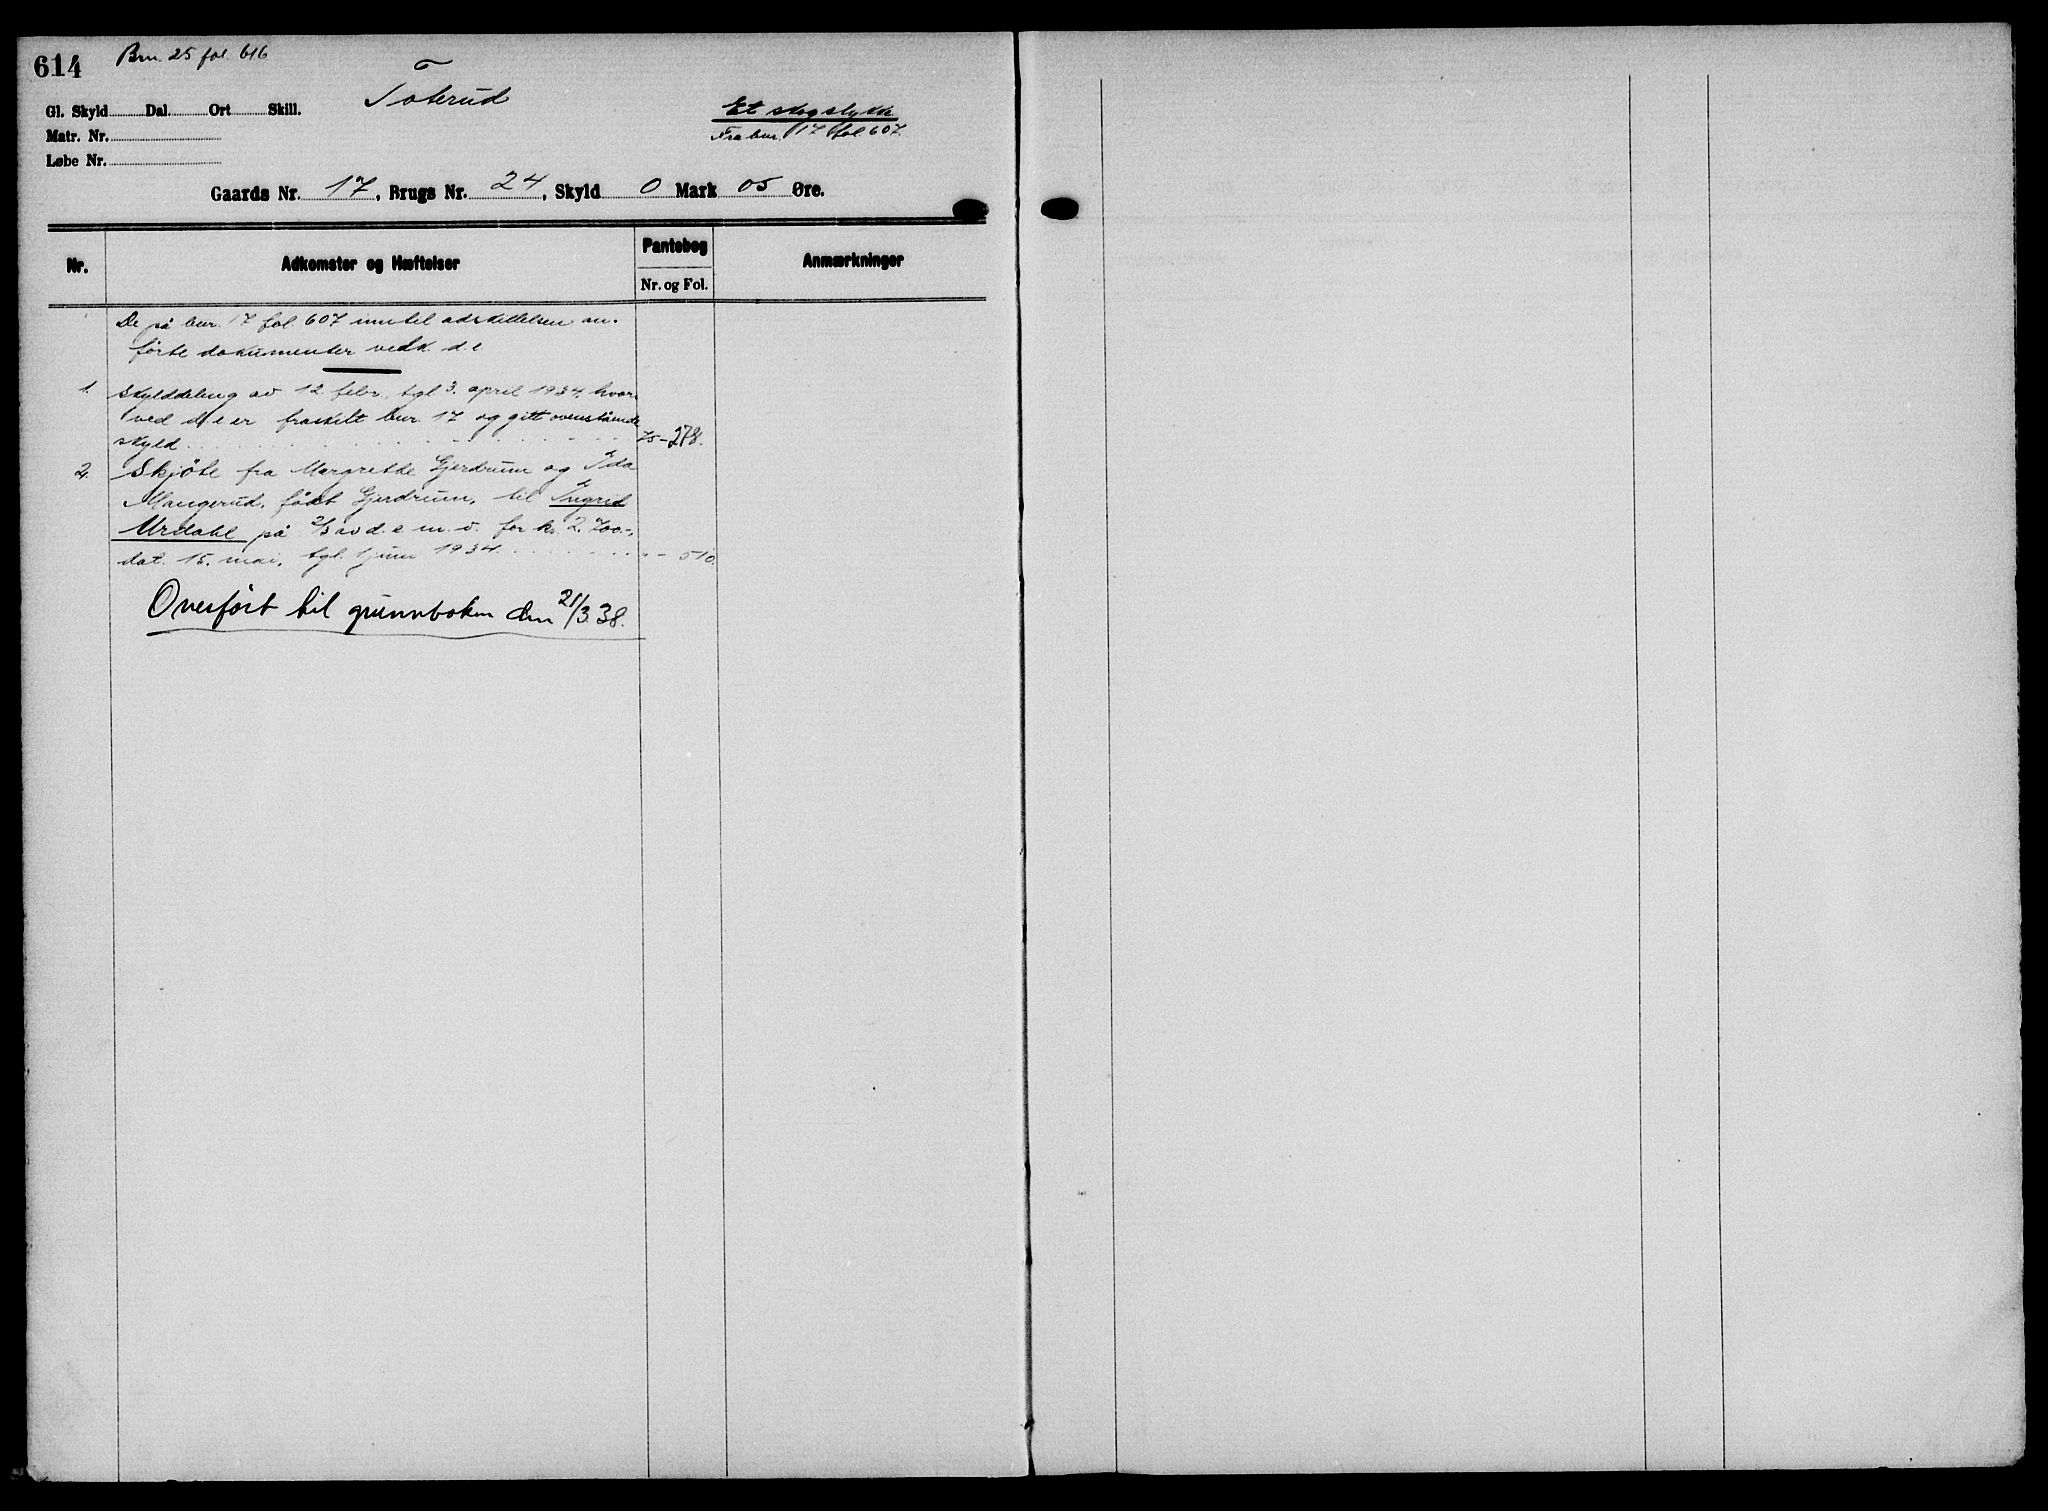 614 Brn. 25 fol. 616
Toterud
Gl. Skyld Dal. Ort Skill.
Matr. Nr.
Løbe Nr.
Et skogstykke
Fra bnr. 17 fol. 607.
Gaards Nr. 17, Brugs Nr. 24, Skyld 0 Mark 05 Øre.
Nr. Adkomster og Hæftelser Pantebog Nr. og Fol. Anmærkninger
De på bnr. 17 fol. 607 inntil adskillelsen an-
førte dokumenter vedk. d. e.
1. Skylddeling av 12. febr., tgl. 3. april 1934, hvor-
ved d. e er fraskilt bnr. 17 og gitt ovenstående
skyld 75 - 278.
2. Skjøte fra Margrethe Gjerdrum og Ida
Mangerud, født Gjerdrum, til Ingrid
Urdahl på 2/3 av d. e m. v. for kr. 2.700.-,
dat. 15. mai, tgl. 1 juni 1934 " - 510.
Overført til grunnboken den 21/3.38.